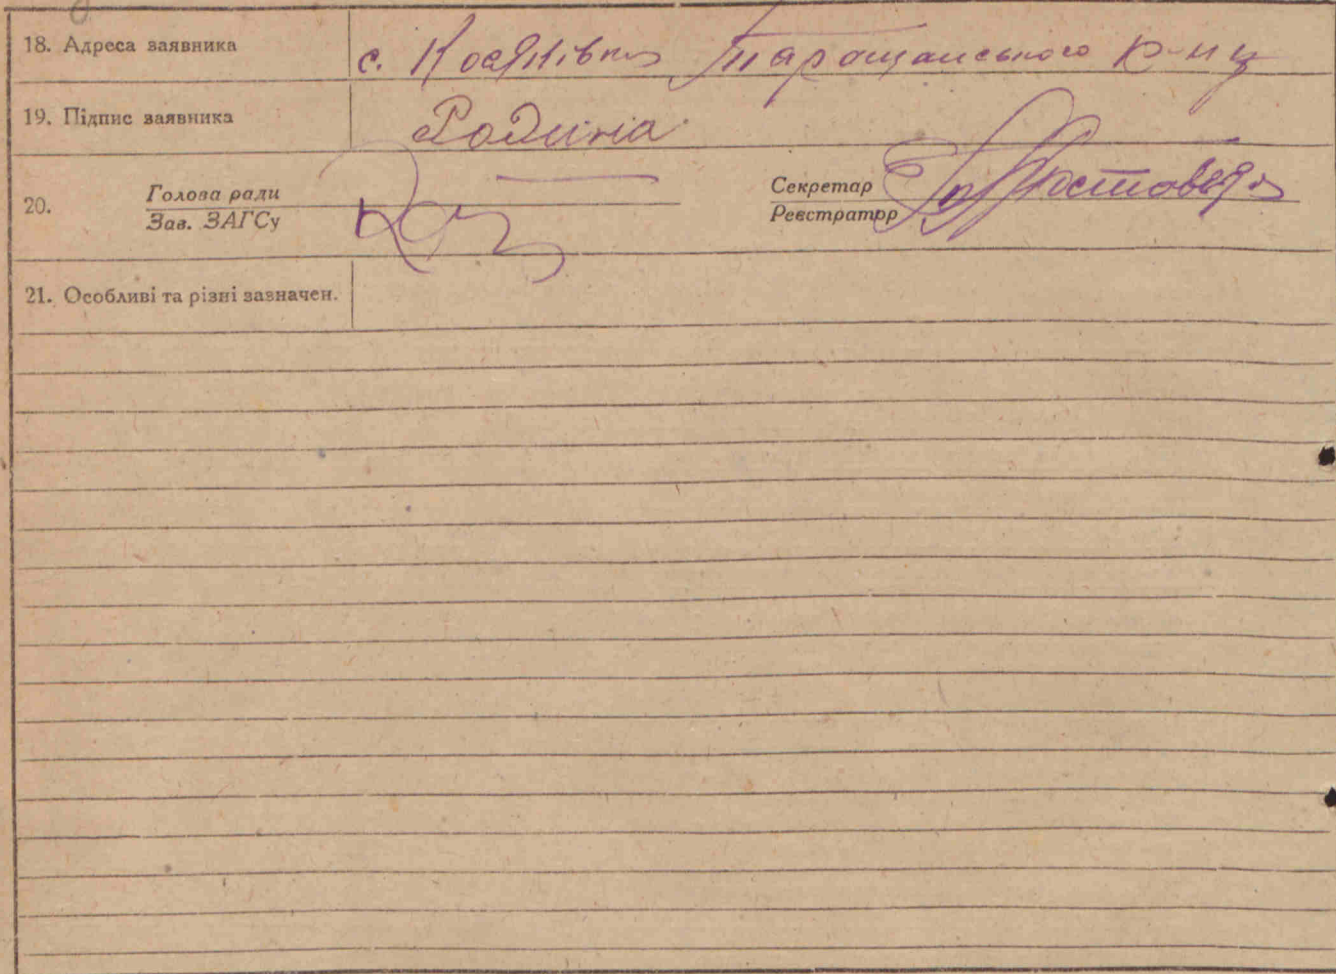 18. Адреса заявника с. Косяківка Таращанського р-ну
19. Підпис заявника Родина
20. Голова ради Секретар
Зав. ЗАГСу Реєстратор
21. Особливі та різні зазначен.